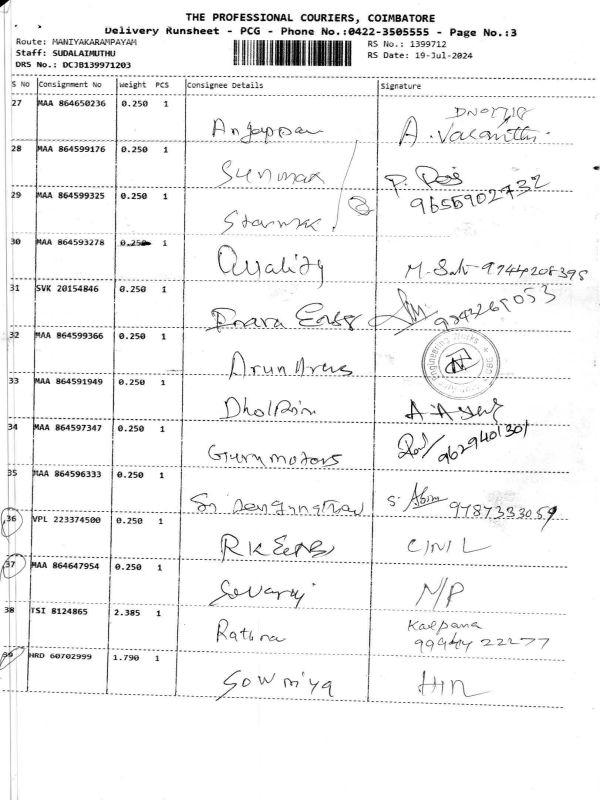 THE PROFESSIONAL COURIERS, COIMBATORE
Delivery Runsheet - PCG - Phone No.:0422-3505555 - Page No.:3
Route: MANIYAKARAMPAYAM RS No.: 1399712
Staff: SUDALAIMUTHU RS Date: 19-Jul-2024
DRS No.: DCJB139971203
S No Consignment No Weight PCS Consignee Details Signature
27 MAA 864650236 0.250 1
Angappan A. Vasanthi
28 MAA 864599176 0.250 1
Sunmax P.
29 MAA 864599325 0.250 1 9655902732
Starmax
30 MAA 864593278 0.250 1
Quality M. 9744208395
31 SVK 20154846 0.250 1
9843265053
32 MAA 864599366 0.250 1
Arun Engineering Works
33 MAA 864591949 0.250 1
34 MAA 864597347 0.250 1
Gurumotors 9629401301
35 MAA 864596333 0.250 1
Sri S. 9787333059
36 VPL 223374500 0.250 1
RK
37 MAA 864647954 0.250 1
Selvaraj N/P
38 TSI 8124865 2.385 1 Kalpana
Rathna 99944 22277
39 HRD 60702999 1.790 1
Sowmiya